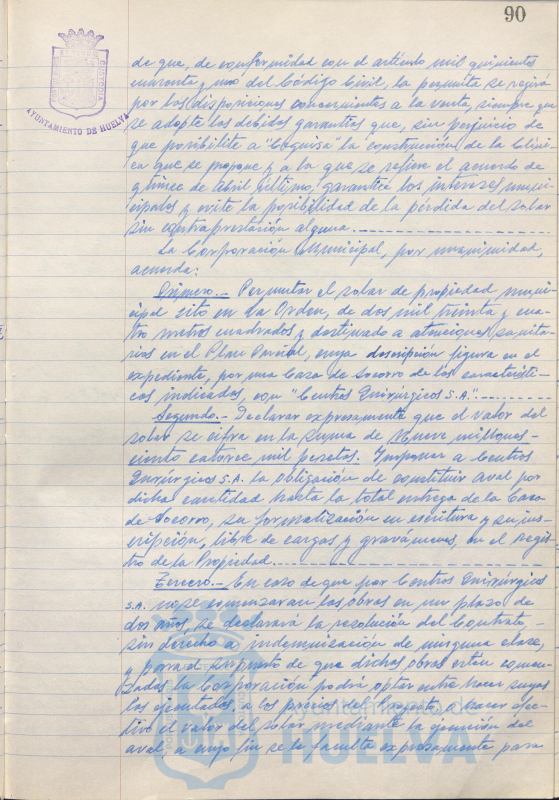 90
AYUNTAMIENTO DE HUELVA
de que, de conformidad con el artículo mil quinientos
cuarenta y uno del Código Civil, la permuta se regirá
por las disposiciones concernientes a la venta, siempre que
se adopte las debidas garantías que, sin perjuicio de
que posibilite a la construcción de la Clíni-
ca que se propone y a la que se refiere el acuerdo de
quince de Abril último, garantice los intereses muni-
cipales y evite la posibilidad de la pérdida del solar
sin contraprestación alguna.
La Corporación Municipal, por unanimidad,
acuerda:
Primero.- Permutar el solar de propiedad muni-
cipal sito en La Orden, de dos mil treinta y cua-
tro metros cuadrados y destinado a atenciones sanita-
rias en el Plan Parcial, cuya descripción figura en el
expediente, por una Casa de Socorro de las característi-
cas indicadas, con "Centros Quirúrgicos S.A."
Segundo.- Declarar expresamente que el valor del
solar se cifra en la suma de Nueve millones
ciento catorce mil pesetas. Imponer a Centros
Quirúrgicos S.A. la obligación de constituir aval por
dicha cantidad hasta la total entrega de la Casa
de Socorro, su formalización en escritura y su ins-
cripción, libre de cargas y gravámenes, en el Regis-
tro de la Propiedad.
Tercero.- En caso de que por Centros Quirúrgicos
S.A. no se comenzaran las obras en un plazo de
dos años, se declarará la resolución del Contrato,
sin derecho a indemnización de ninguna clase,
y para el supuesto de que dichas obras estén comen-
zadas la Corporación podrá optar entre hacer suyas
las ejecutadas, a los precios del Proyecto, o hacer efec-
tivo el valor del solar mediante la ejecución del
aval, a cuyo fin se le faculta expresamente para
Ayuntamiento de
HUELVA